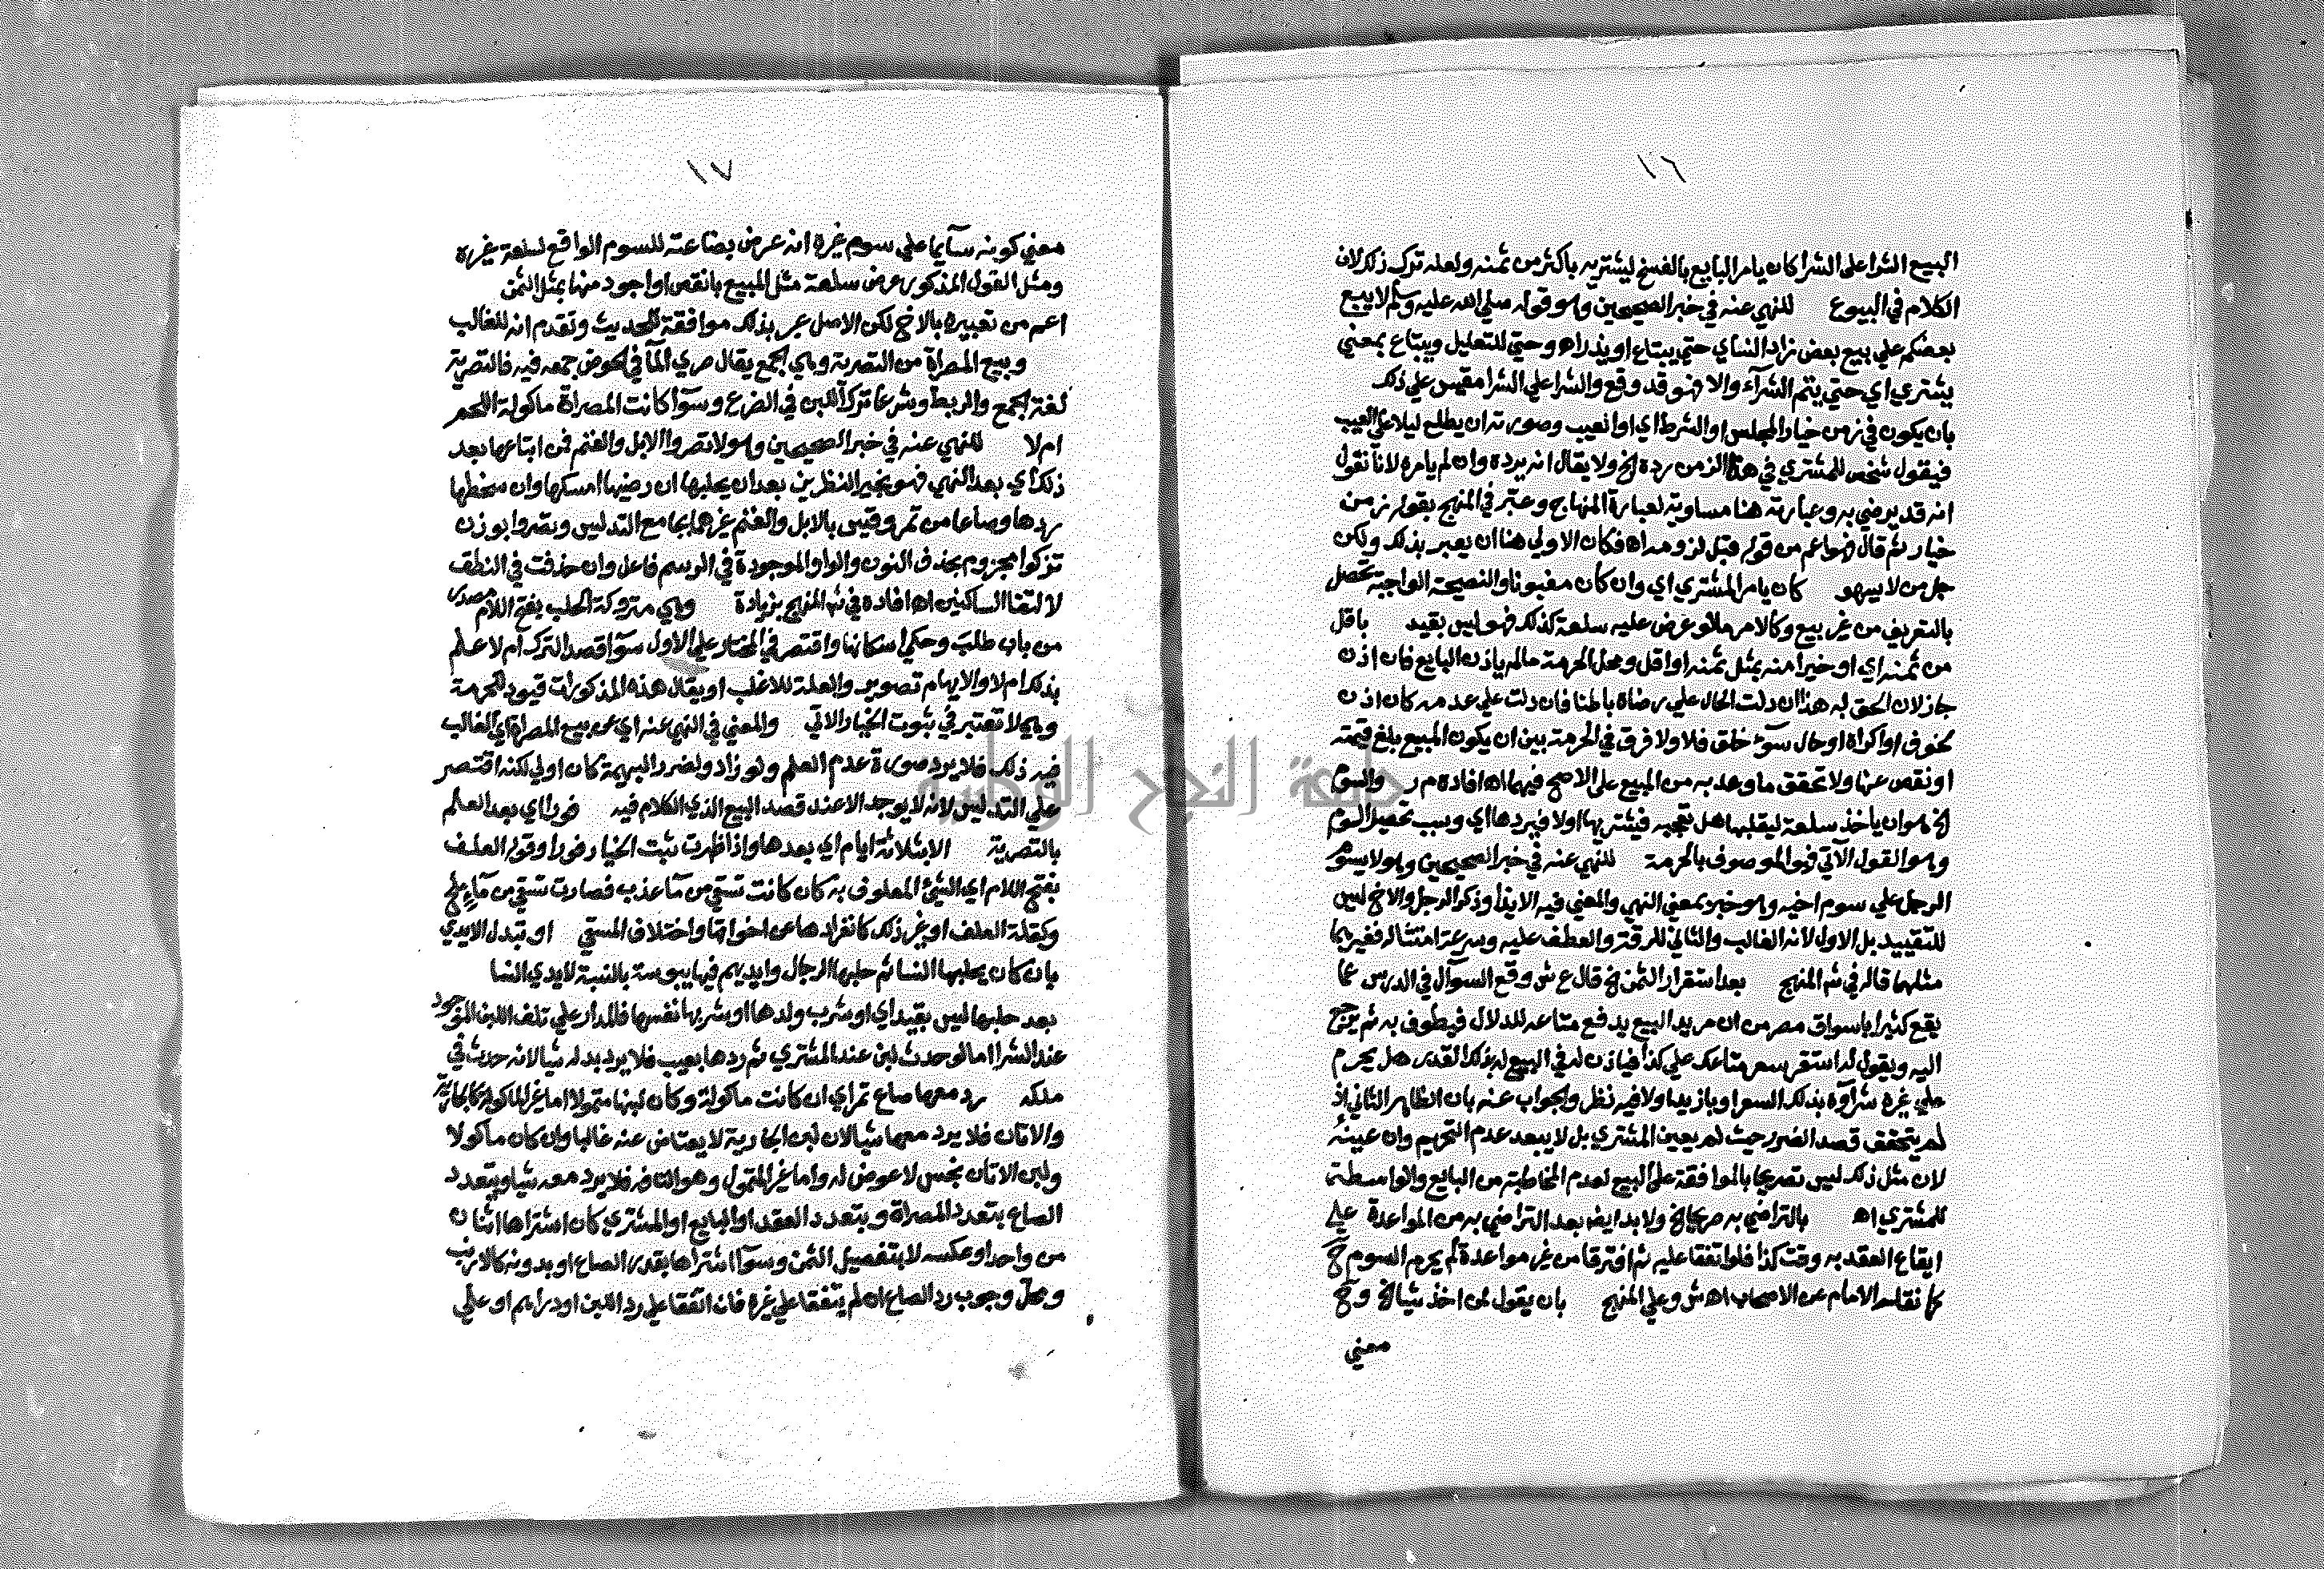 ١٦
البيع الشرا على الشرا كان يامر البايع بالفسخ ليشتريه باكثر من ثمنه ولعله ترك ذلك لان
الكلام في البيوع للنهي عنه في خبر الصحيحين وهو قوله صلي الله عليه وسلم لا يبع
بعضكم علي بيع بعض زاد النساي حتي يبتاع او يذر اه وحتي للتعليل ويبتاع بمعني
يشتري اي حتي يتم الشرآء والا فهو قد وقع والشرا علي الشرا مقيس علي ذلك
بان يكون في زمن خيار المجلس او الشرط اي او العيب وصورته ان يطلع ليلا علي العيب
فيقول شخص للمشتري في هذا الزمن رده الخ ولا يقال انه يرده وان لم يامره لانا نقول
انه قد يرضي به وعبارته هنا مساوية لعبارة المنهاج وعبر في المنهج بقوله زمن
خيار ثم قال فهو اعم من قوله قبل لزومه اه فكان الاولي هنا ان يعبر بذلك ولكن
جل من لا يسهو كان يامر المشتري اي وان كان مغبونا والنصيحة الواجبة تحصل
بالتعريف من غير بيع وكالامر ما لو عرض عليه سلعة كذلك فهو ليس بقيد باقل
من ثمنه اي او خيرا منه بمثل ثمنه او اقل ومحل الحرمة ما لم ياذن البايع فان اذن
جاز لان الحق له هذا ان دلت الحال علي رضاه باطنا فان دلت علي عدمه كان اذن
لخوف او اكراه او حال سوء خلق فلا ولا فرق في الحرمة بين ان يكون المبيع بلغ قيمته
او نقص عنها ولا تحقق ما وعد به من المبيع علي الاصح فيهما اه افاده م ر والسوم
الخ هو ان ياخذ سلعة ليقلبها هل تعجبه فيشتريها او لا فيردها اي وسبب تحصيل السوم
وهو القول الآتي فهو الموصوف بالحرمة للنهي عنه في خبر الصحيحين وهو لا يسوم
الرجل علي سوم اخيه وهو خبر بمعني النهي والمعني فيه الايذا وذكر الرجل والاخ ليس
للتقييد بل الاول لانه الغالب والثاني للرقة والعطف عليه وسرعة امتثاله فغيرهما
مثلهما قاله في شم المنهج بعد استقرار الثمن الخ قال ع ش وقع السوال في الدرس عما
يقع كثيرا باسواق مصر من ان مريد البيع يدفع متاعه للدلال فيطوف به ثم يرجع
اليه ويقول له استقر سعر متاعك علي كذا فياذن له في البيع له بذلك القدر هل يحرم
علي غيره شرآوه بذلك السعر او بازيد او لا فيه نظر والجواب عنه بان الظاهر الثاني اذ
لم يتحقق قصد الضرر حيث لم يعين المشتري بل لا يبعد عدم التحريم وان عينه
لان مثل ذلك ليس تصريحا بالموافقة علي البيع لعدم المخاطبة من البايع والواسطة
للمشتري اه بالتراضي به صريحا الخ ولا بد ايضا بعد التراضي به من المواعدة علي
ايقاع العقد به وقت كذا فلو اتفقا عليه ثم افترقا من غير مواعدة لم يحرم السوم ح
كما نقله الامام عن الاصحاب اه ش وعلي المنهج بان يقول لمن اخذ شيا الخ وح
معني
١٧
معني كونه سآيما علي سوم غيره انه عرض بضاعته للسوم الواقع لسلعة غيره
ومثل القول المذكور عرض سلعة مثل المبيع بانقص او اجود منها بمثل الثمن
اعم من تعبيره بالاخ لكن الاصل عبر بذلك موافقة للحديث وتقدم انه للغالب
وبيع المصراة من التصرية وهي الجمع يقال صري المآ في الحوض جمعه فيه فالتصرية
لغة الجمع والربط وشرعا ترك اللبن في الضرع وسوآ كانت المصراة ماكولة اللحم
ام لا للنهي عنه في خبر الصحيحين وهو لا تصروا الابل والغنم فمن ابتاعها بعد
ذلك اي بعد النهي فهو بخير النظرين بعد ان يحلبها ان رضيها امسكها وان سخطها
ردها وصاعا من تمر وقيس بالابل والغنم غيرهما بجامع التدليس وتصروا بوزن
تزكوا مجزوم بحذف النون والواو الموجودة في الرسم فاعل وان حذفت في النطق
لالتقا الساكنين اه افاده في شم المنهج بزيادة وهي متروكة الحلب بفتح اللام مصدر
من باب طلب وحكي اسكانها واقتصر في المختار علي الاول سوآ قصد الترك ام لا علم
بذلك ام لا والايهام تصوير والعلة للاغلب او يقال هذه المذكورات قيود للحرمة
وهي لا تعتبر في ثبوت الخيار الاتي والمعني في النهي عنه اي عن بيع المصراة اي الغالب
فيه ذلك فلا يرد صورة عدم العلم ولو زاد ولضرر البهيمة كان اولي لكنه اقتصر
علي التدليس لانه لا يوجد الا عند قصد البيع الذي الكلام فيه فورا اي بعد العلم
بالتصرية الا بثلاثة ايام اي بعدها واذا ظهرت ثبت الخيار فورا وقوله العلف
بفتح اللام اي الشئ المعلوف به كان كانت تستقي من مآ عذب فصارت تستقي من مآء ملح
وكقلة العلف او غير ذلك كانفرادها عن اخواتها واختلاف المستقي او تبدل الايدي
بان كان يحلبها النسا ثم حلبها الرجال وايديهم فيها يبوسة بالنسبة لايدي النسا
بعد حلبها ليس بقيد اي او شرب ولدها او شربها نفسها فالمدار علي تلف اللبن الموجود
عند الشرا اما لو حدث لبن عند المشتري ثم ردها بعيب فلا يرد بدله شيا لانه حدث في
ملكه رد معها صاع تمر اي ان كانت ماكولة وكان لبنها متمولا اما غير الماكولة كالجارية
والاتان فلا يرد معهما شيا لان لبن الجارية لا يعتاض عنه غالبا وان كان ماكولا
ولبن الاتان نجس لا عوض له واما غير المتمول وهو التافه فلا يرد معه شيا ويتعدد
الصاع بتعدد المصراة وبتعدد العقد او البايع او المشتري كان اشتراها اثنان
من واحد او عكسه لا بتفصيل الثمن وسوآ اشتراها بقدر الصاع او بدونه كالارنب
ومحل وجوب رد الصاع ان لم يتفقا علي غيره فان اتفقا علي رد اللبن او دراهم او علي